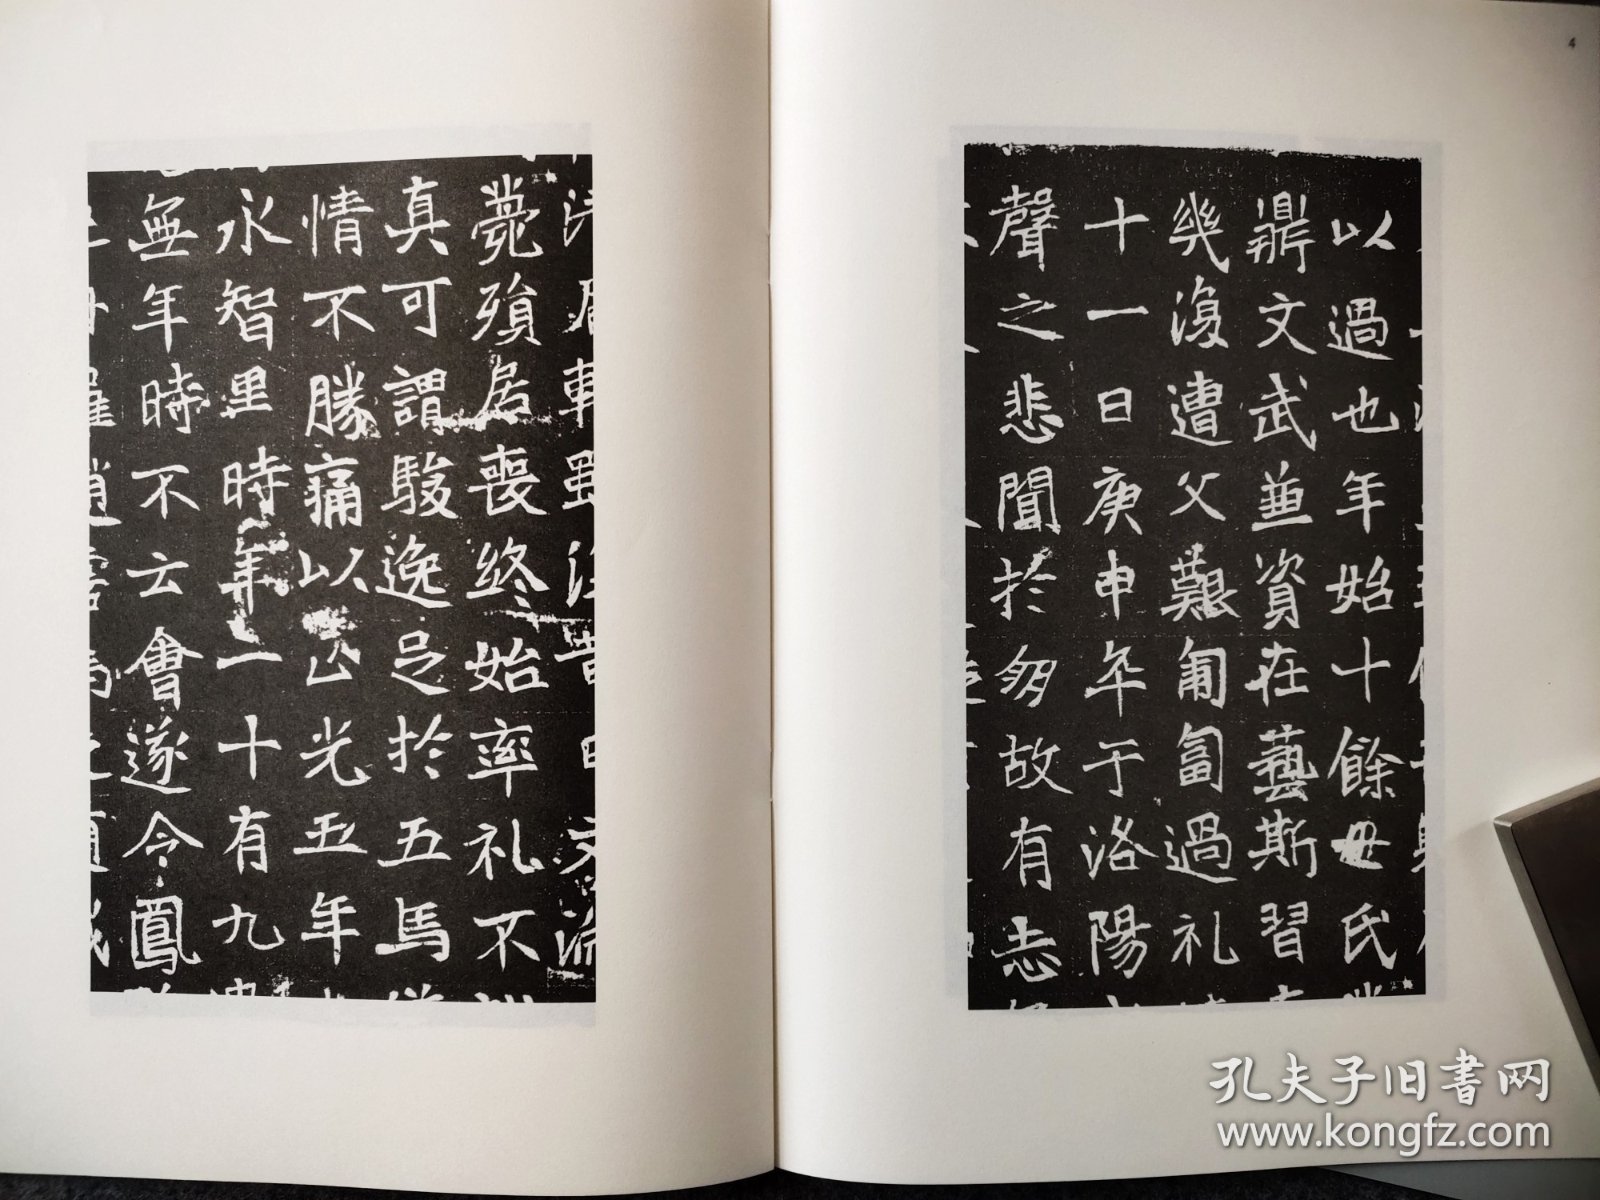 4
以過也年始十餘母氏
鼎文武並資在藝斯習
幾復遭父艱匍匐過礼
十一日庚申卒于洛陽
聲之悲聞於故有志
薨殞居喪終始率礼不
真可謂駿逸足於五馬
情不勝痛以正光五年
永智里時年一十有九
無年時不云會遂令鳳
孔夫子旧书网
www.kongfz.com